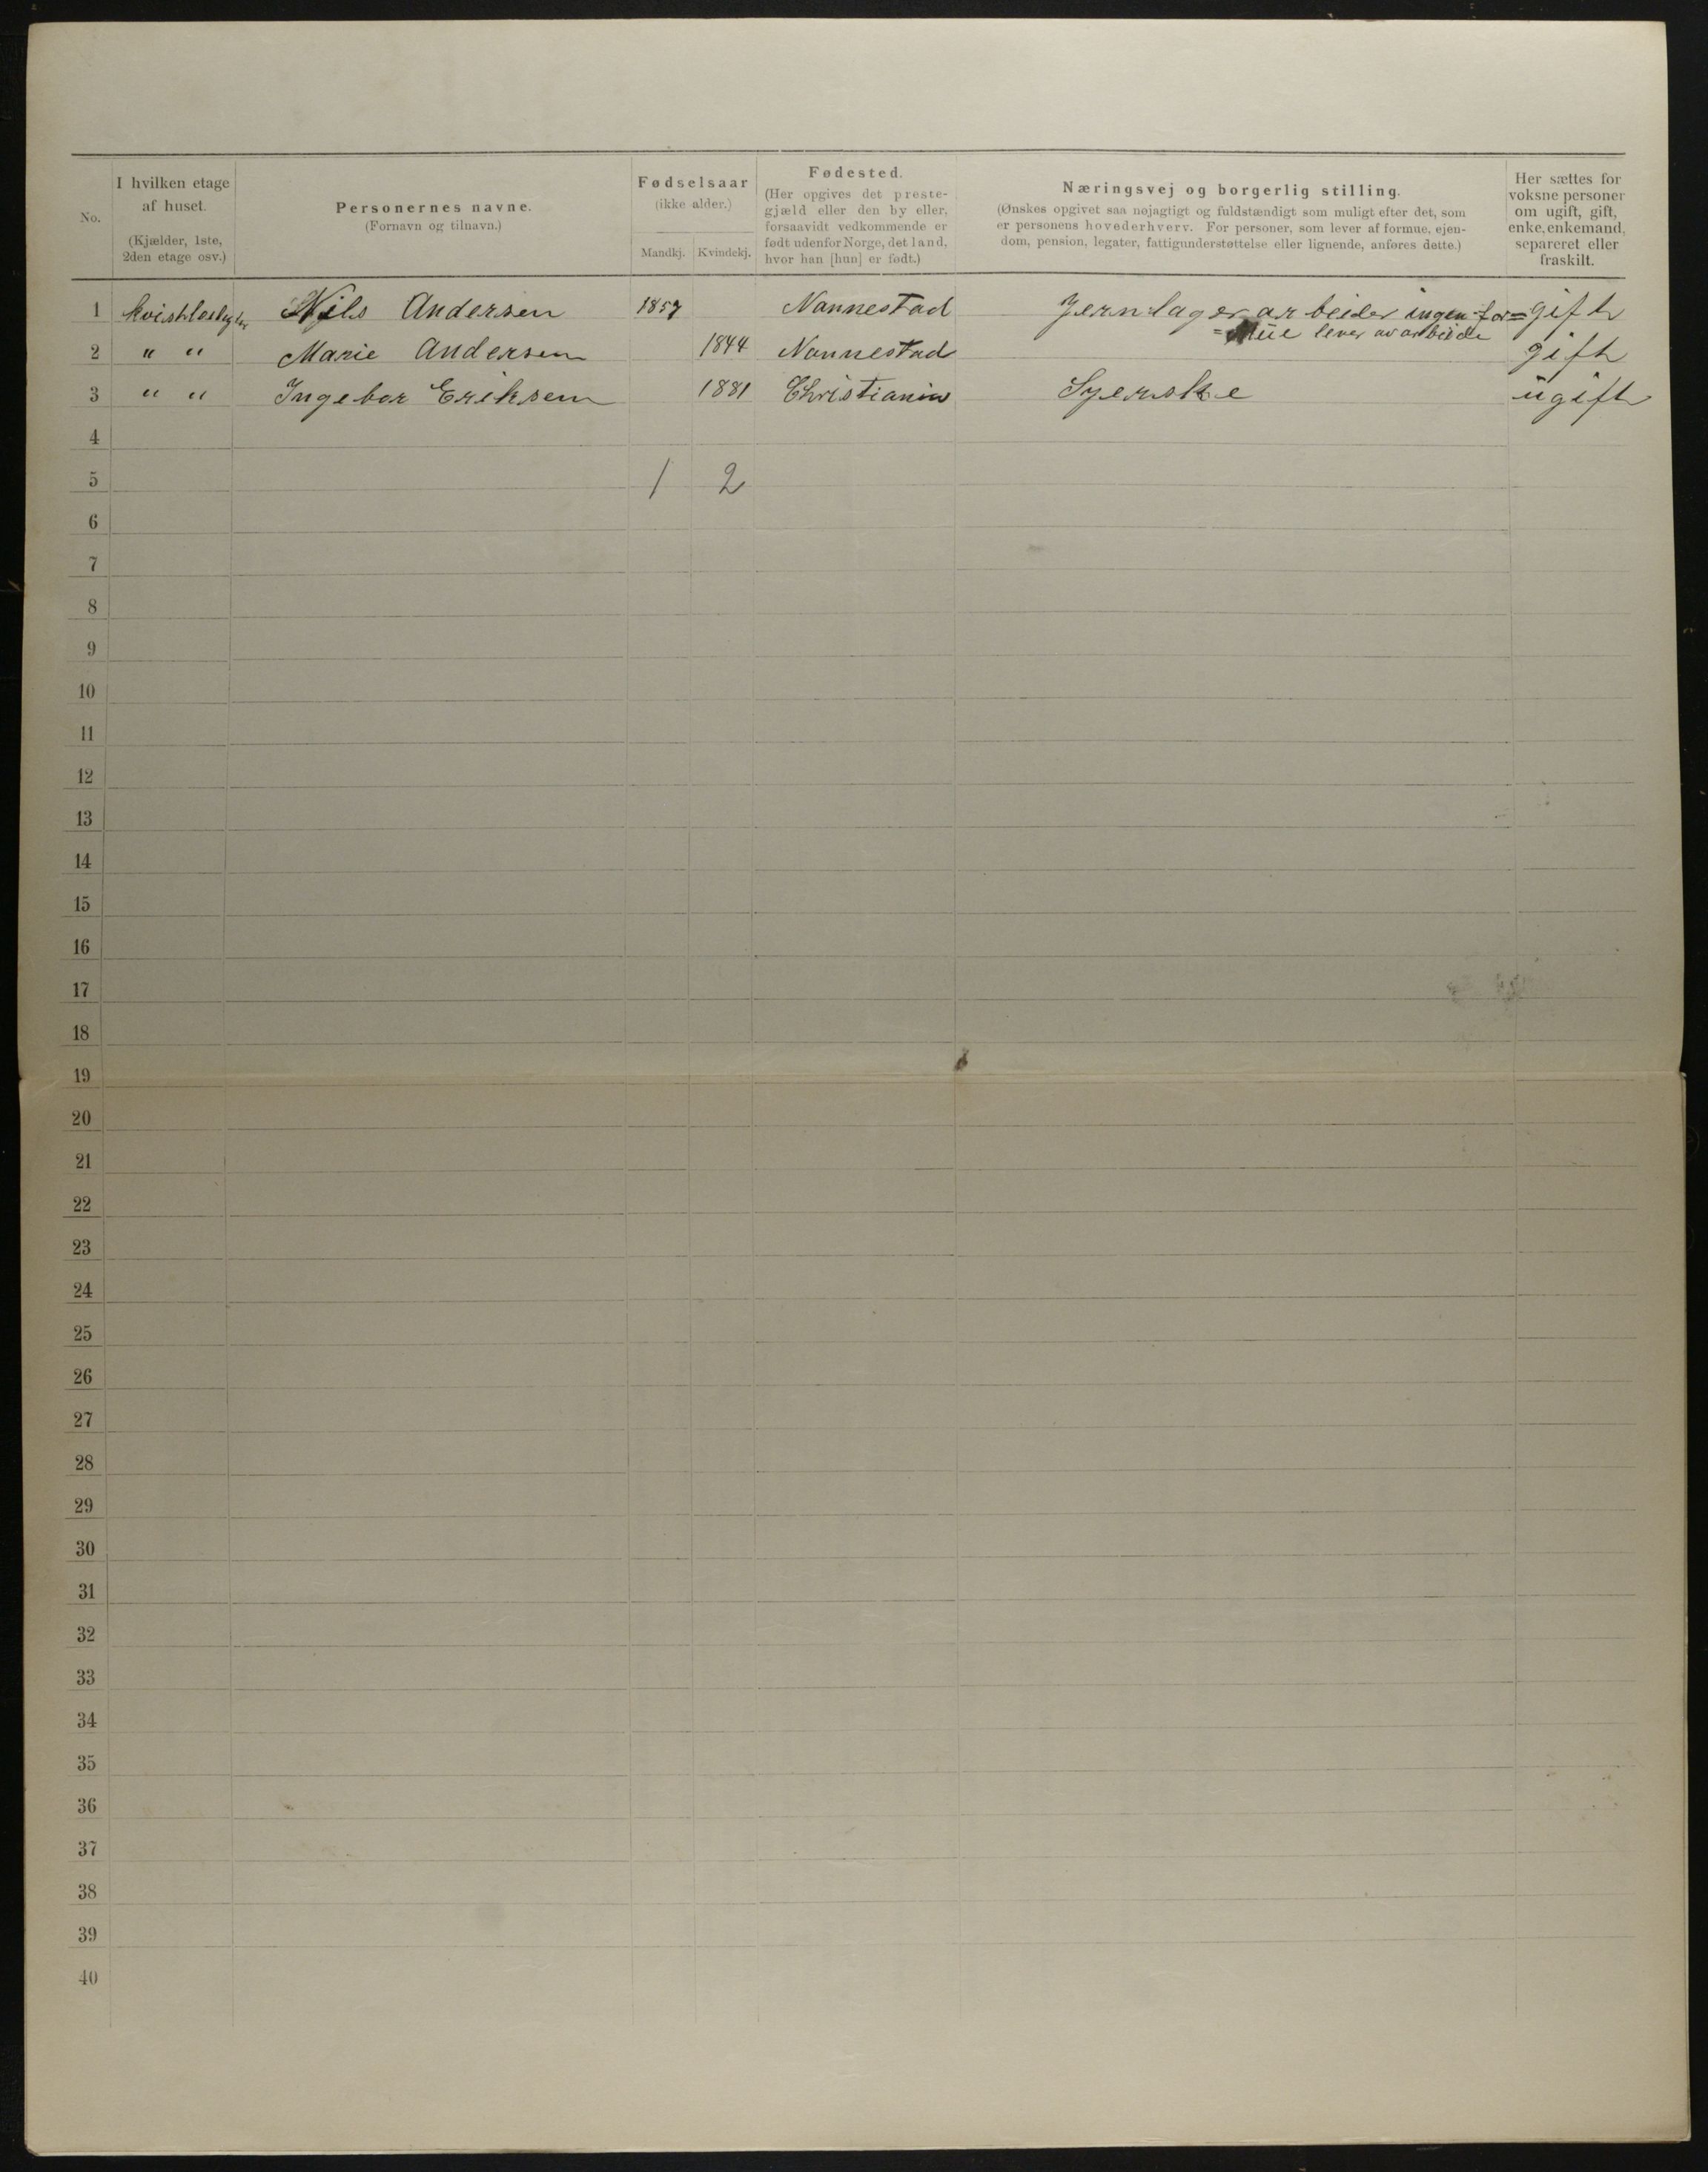 No.
I hvilken etage
af huset.
(Kjælder, 1ste,
2den etage osv.)
Personernes navne.
(Fornavn og tilnavn.)
Fødselsaar
(ikke alder.)
Mandkj. Kvindekj.
Fødested.
(Her opgives det preste-
gjæld eller den by eller,
forsaavidt vedkommende er
født udenfor Norge, det land,
hvor han [hun] er født.)
Næringsvej og borgerlig stilling.
(Ønskes opgivet saa nøjagtigt og fuldstændigt som muligt efter det, som
er personens hovederhverv. For personer, som lever af formue, ejen-
dom, pension, legater, fattigunderstøttelse eller lignende, anføres dette.)
Her sættes for
voksne personer
om ugift, gift,
enke, enkemand,
separeret eller
fraskilt.
1 Nils Andersen 1857 Nannestad Jernlager arbeider ingen for= gift
=Müe lever av arbeide
2 " " Marie Andersen 1844 Nannestad gift
3 " " Ingebor Eriksen 1881 Christiania Syerske ügift
4
5 1 2
6
7
8
9
10
11
12
13
14
15
16
17
18
19
20
21
22
23
24
25
26
27
28
29
30
31
32
33
34
35
36
37
38
39
40